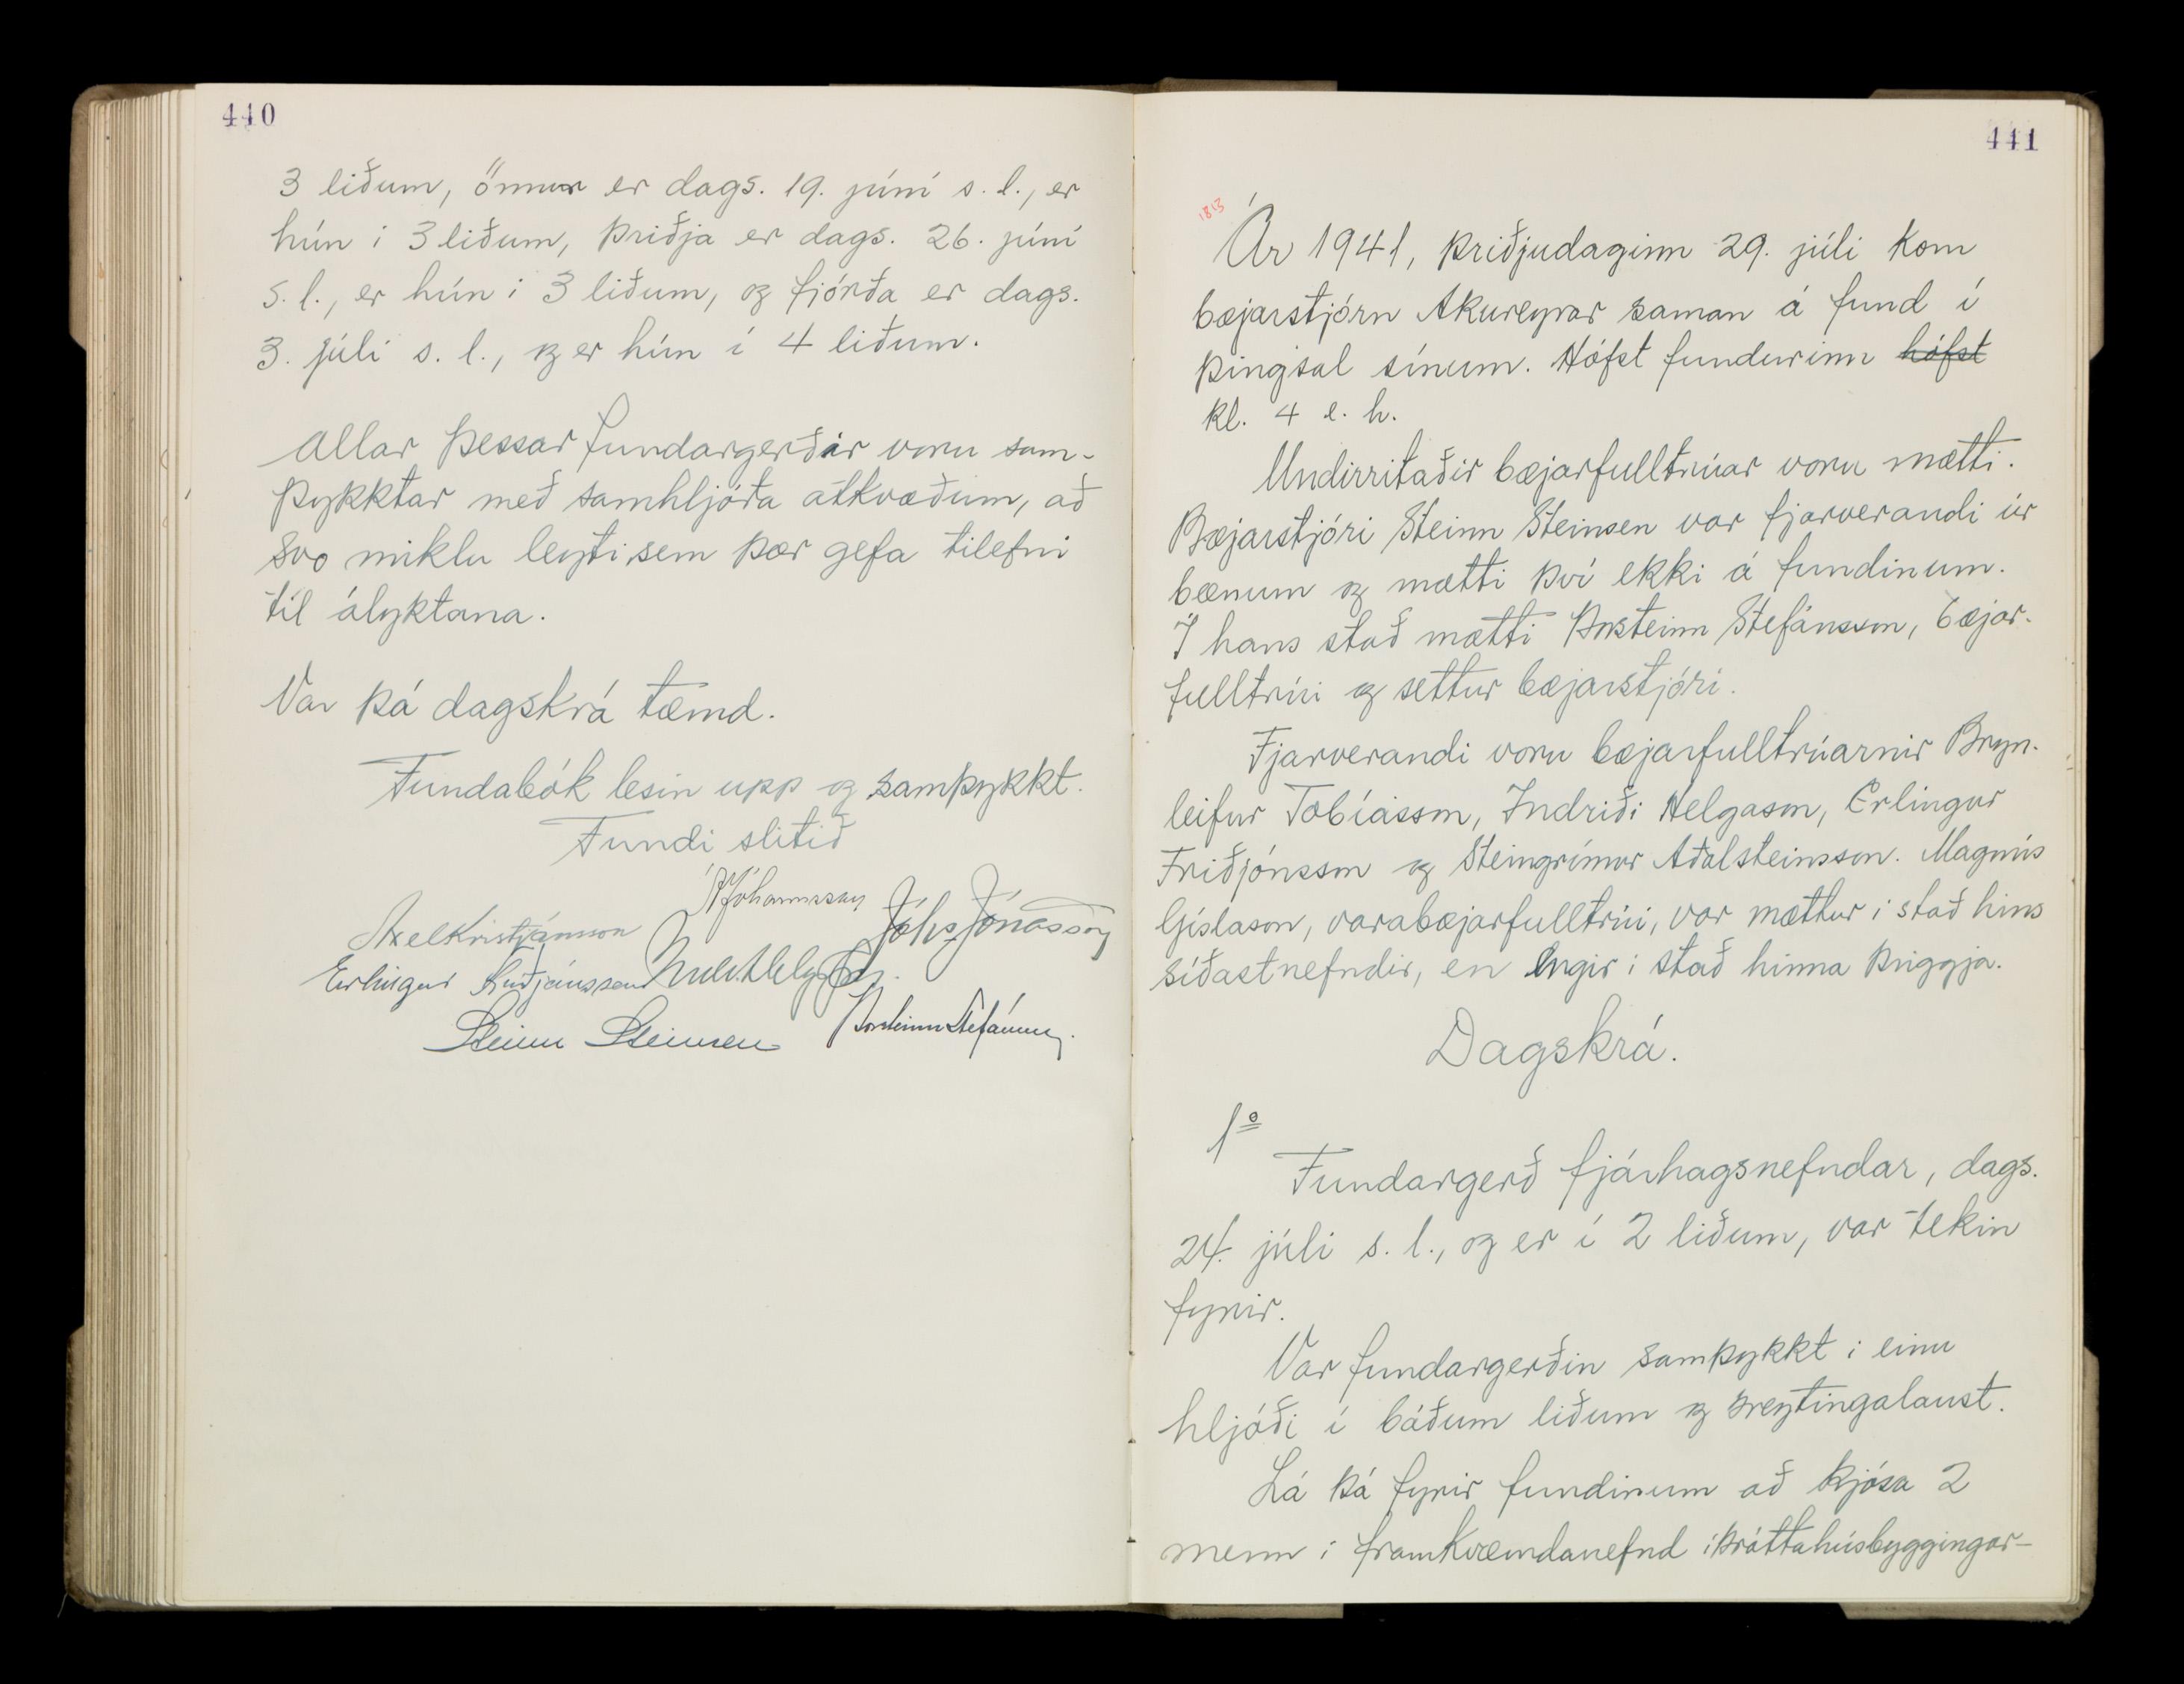 440
3 liðum, önnur er dags. 19. júní s. l., er
hún í 3 liðum, þriðja er dags. 26. júní
s. l., er hún i 3 liðum, og fjórða er dags.
3. júlí s. l., og er hún í 4 liðum.
Allar þessar fundargerðir voru sam-
þykktar með samhljóða atkvæðum, að
svo miklu leyti, sem þær gefa tilefni
til ályktana.
Var þá dagskrá tæmd.
Fundabók lesin upp og samþykkt.
Fundi slitið
Jóhannsson
Axel Kristjánsson
Jóhs. Jónasson
Erlingur Friðjónsson
Steinn Steinsen
Þorsteinn Stefánsson
441
1813
Ár 1941, þriðjudaginn 29. júli kom
bæjarstjórn Akureyrar saman á fund í
þingsal sínum. Hófst fundurinn hófst
kl. 4 e. h.
Undirritaðir bæjarfulltrúar voru mætti.
Bæjarstjóri Steinn Steinsen var fjarverandi úr
bænum og mætti því ekki á fundinum.
Í hans stað mætti Þorsteinn Stefánsson, bæjar-
fulltrúi og settur bæjarstjóri.
Fjarverandi voru bæjarfulltrúarnir Bryn-
leifur Tobíasson, Indriði Helgason, Erlingur
Friðjónsson og Steingrímur Aðalsteinsson. Magnús
Gíslason, varabæjarfulltrúi, var mættur i stað hins
síðastnefndis, en engir i stað hinna þriggja.
Dagskrá.
1º
Fundargerð fjárhagsnefndar, dags.
24. júli s. l., og er í 2 liðum, var tekin
fyrir.
Var fundargerðin samþykkt i einu
hljóði í báðum liðum og breytingalaust.
Lá þá fyrir fundinum að kjósa 2
menn i framkvæmdanefnd íþróttahúsbyggingar-